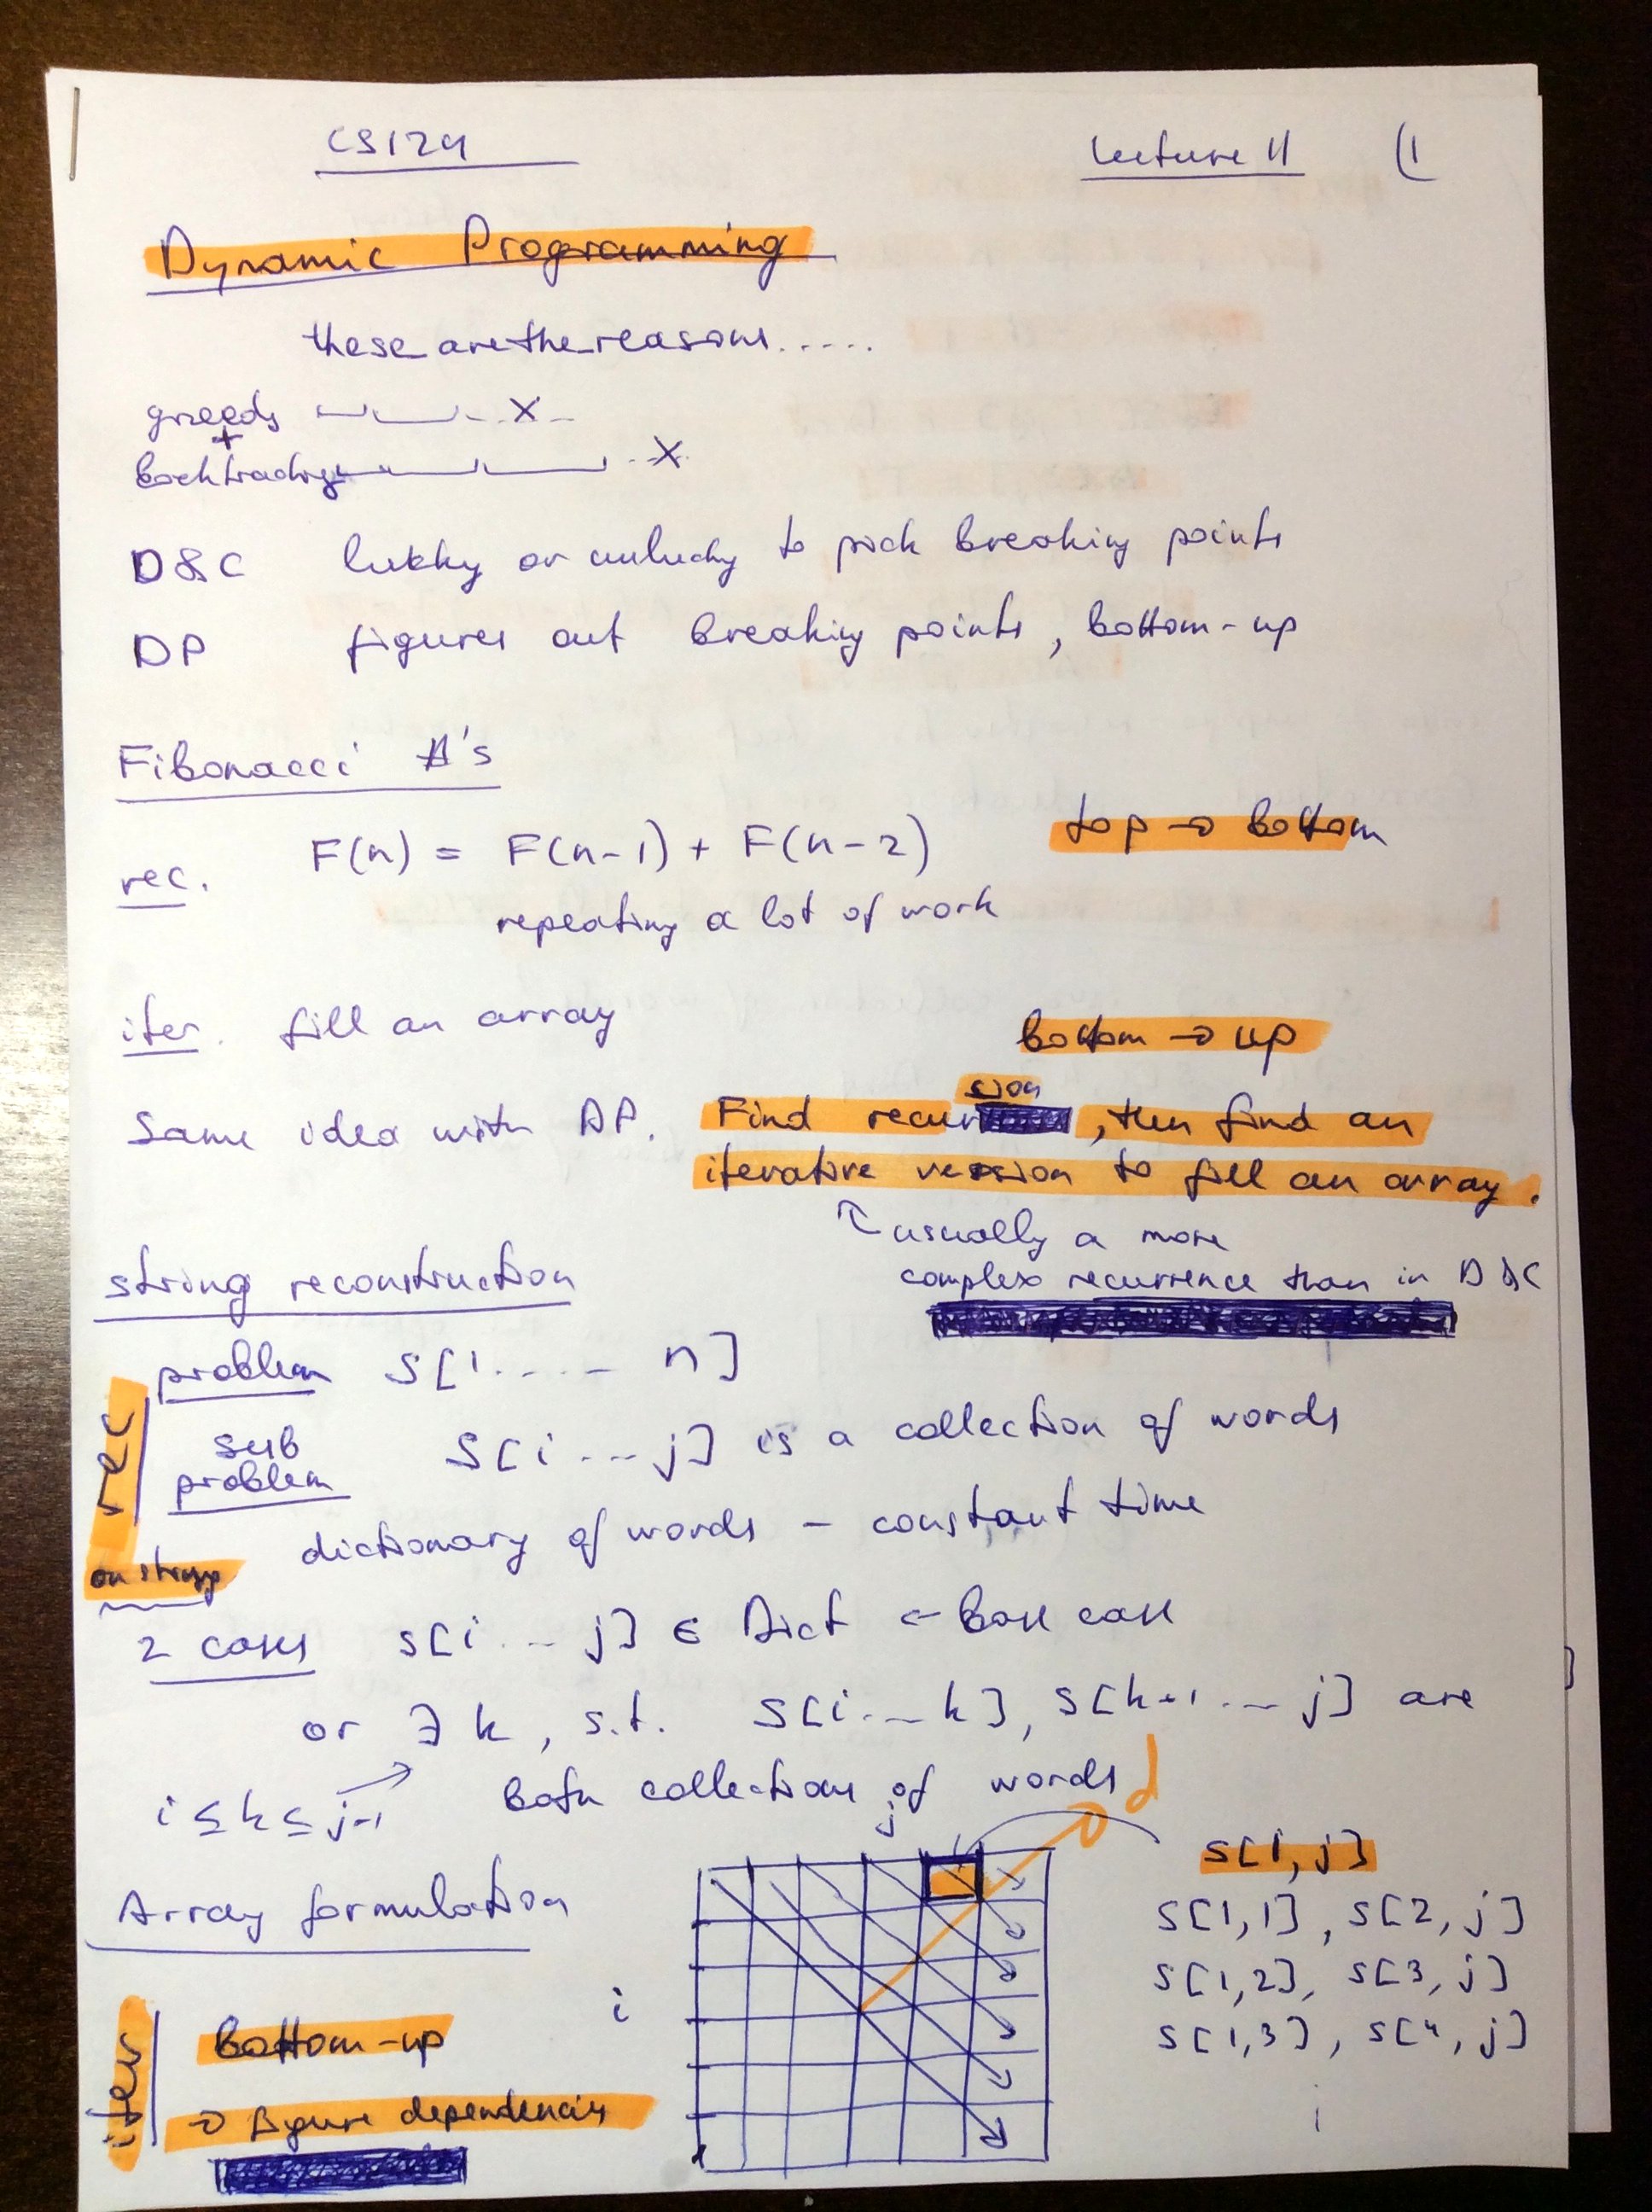 CS124
Lecture 11 (1
Dynamic Programming
these are the reasons.....
greedy X
+
backtracking X
D&C lukky or unlucky to pick breaking points
DP figures out breaking points, bottom-up
Fibonacci #'s
rec. F(n) = F(n-1) + F(n-2) top → bottom
repeating a lot of work
iter. fill an array bottom → up
Same idea with DP. Find recursion, then find an
iterative version to fill an array.
↑ usually a more
complex recurrence than in D&C
string reconstruction
problem S[1..... n]
rec
sub problem S[i ... j] is a collection of words
on strings
dictionary of words - constant time
2 cases S[i ... j] ∈ Dict ← base case
or ∃ k, s.t. S[i...k], S[k+1 ... j] are
i ≤ k ≤ j-1 both collections of words
d
j
Array formulation
i
S[1, j]
S[1,1], S[2, j]
S[1,2], S[3, j]
S[1,3], S[4, j]
⋮
iter
Bottom-up
→ figure dependencies